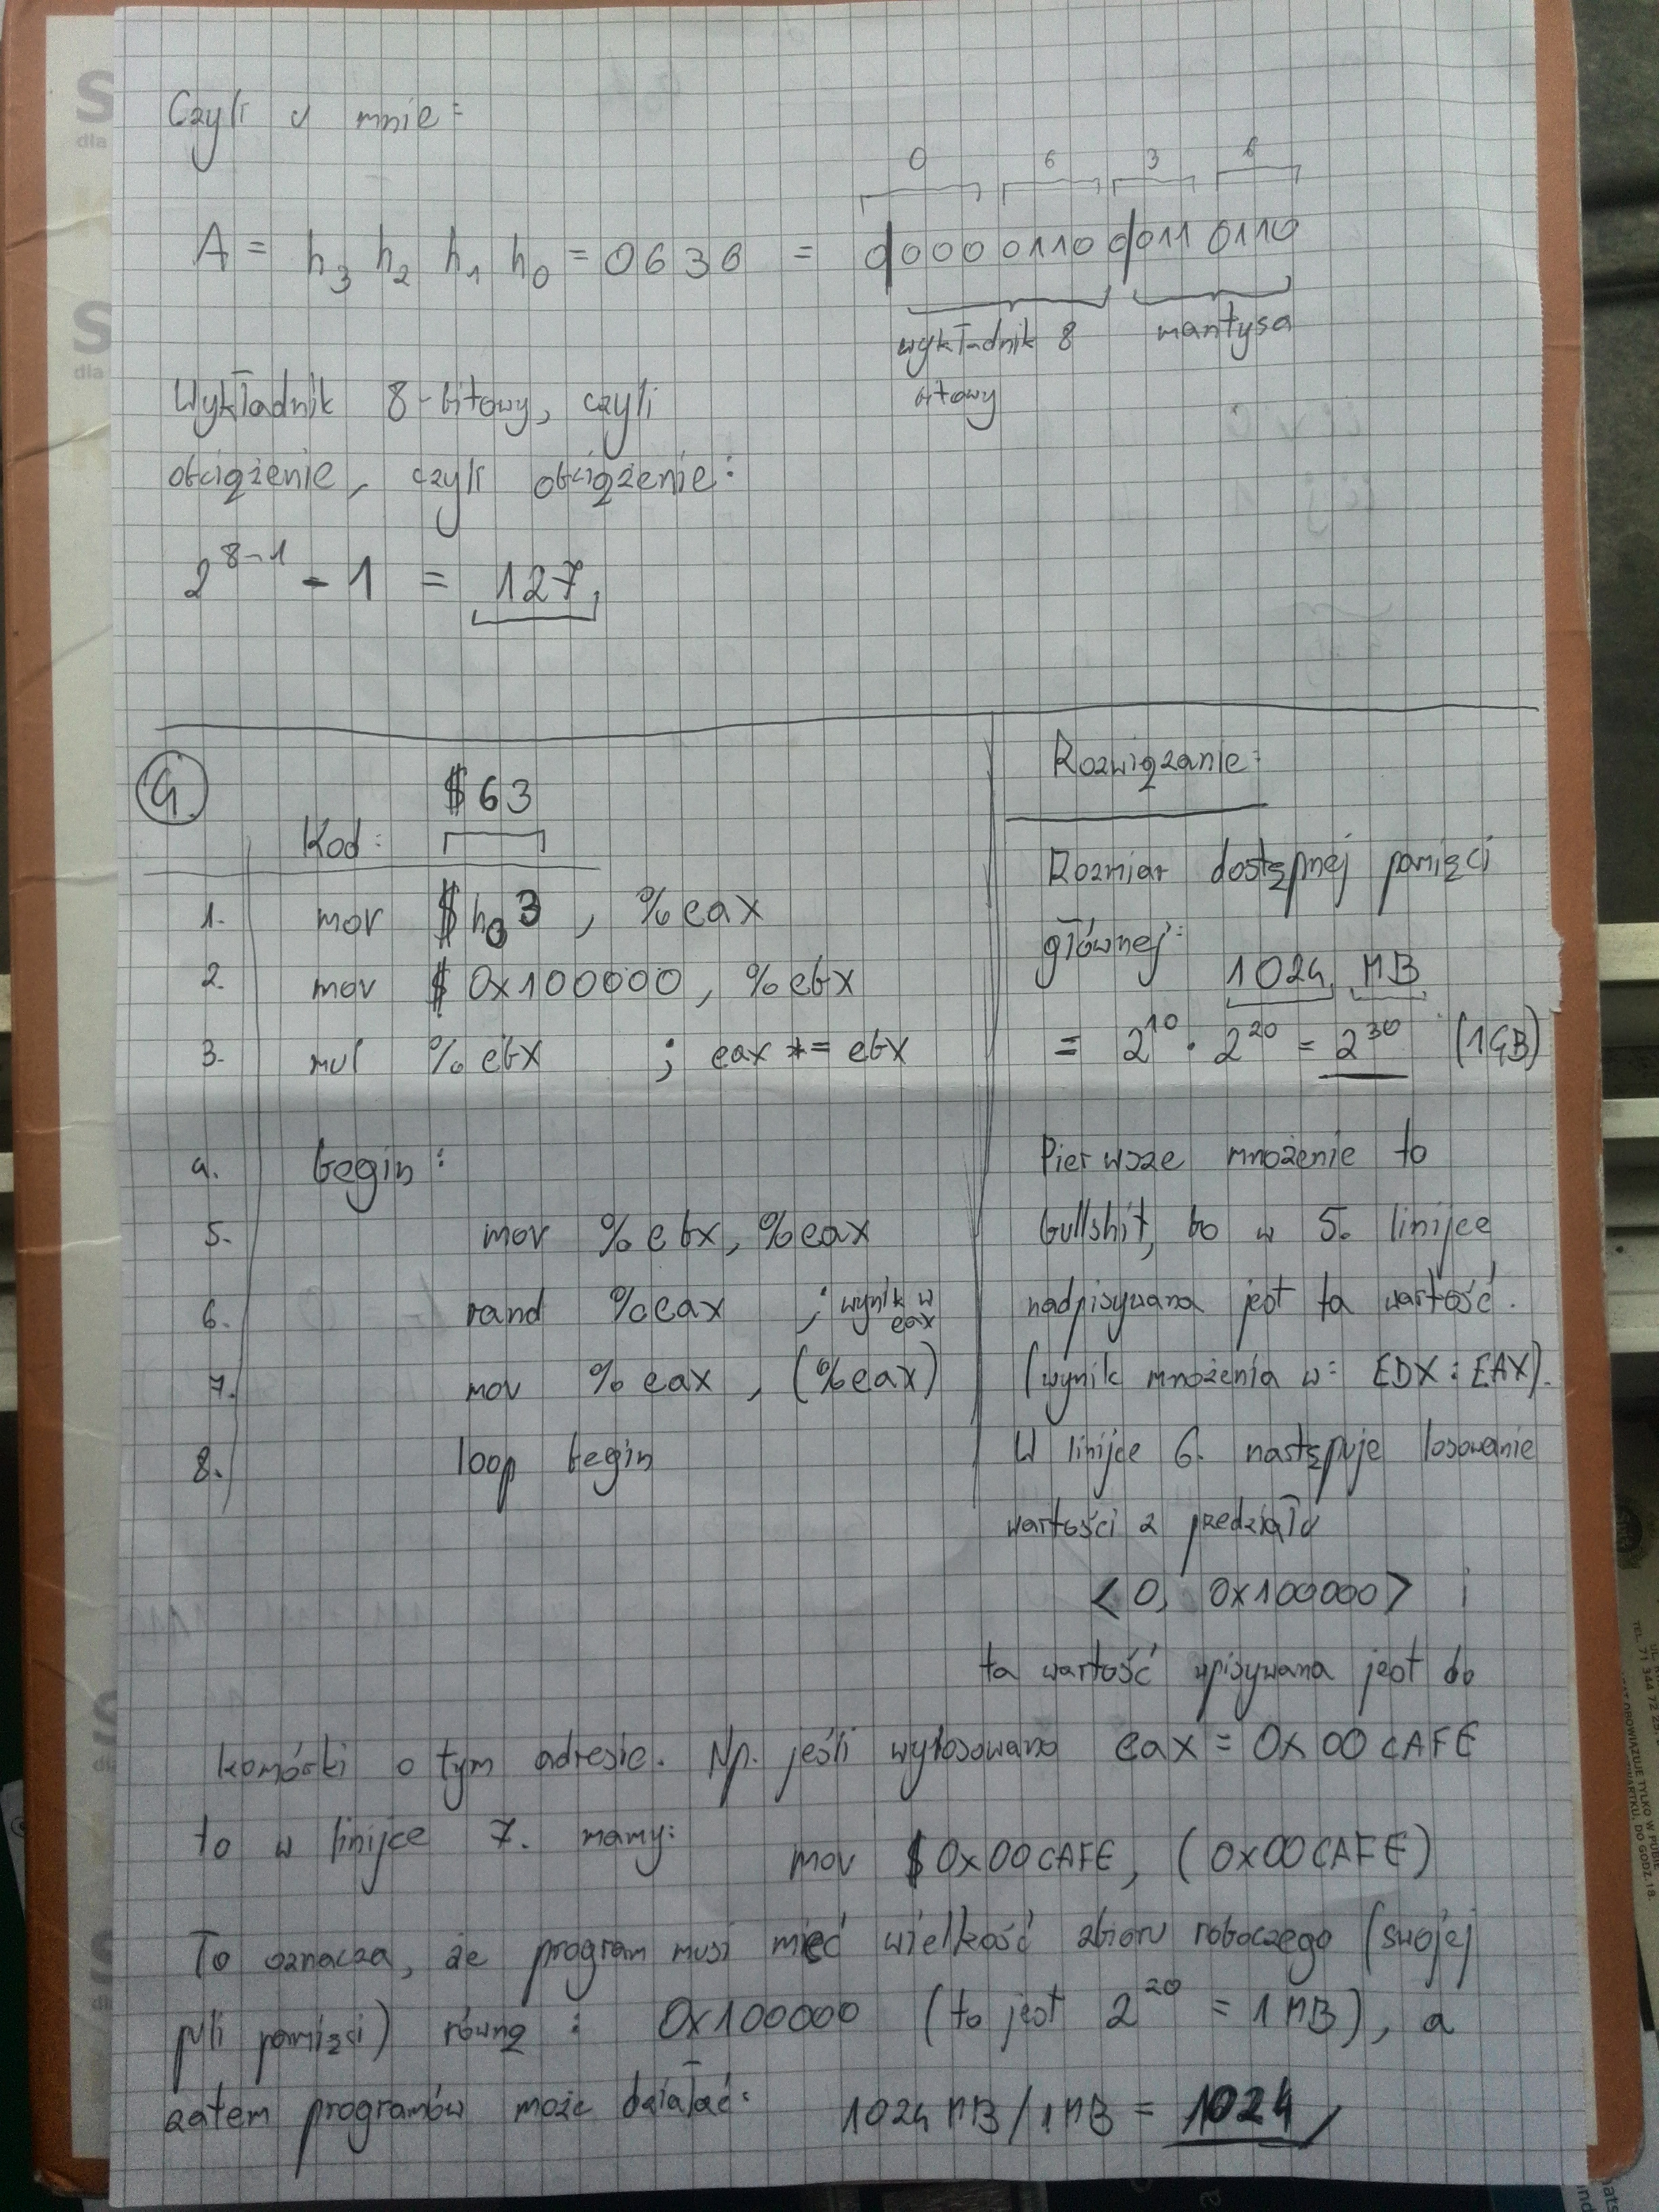 Czyli u mnie:
0 6 3 6
A = h3 h2 h1 h0 = 0636 = 0000 0110 0011 0110
wykładnik 8 bitowy
mantysa
Wykładnik 8-bitowy, czyli
obciążenie, czyli obciążenie:
2^8-1 - 1 = 127
4.
$63
Kod:
1. mov $h03, %eax
2. mov $0x100000, %ebx
3. mul %ebx ; eax *= ebx
4. begin:
5. mov %ebx, %eax
6. rand %eax ; wynik w eax
7. mov %eax, (%eax)
8. loop begin
Rozwiązanie:
Rozmiar dostępnej pamięci
głównej: 1024 MB
= 2^10 · 2^20 = 2^30 (1GB)
Pierwsze mnożenie to
bullshit, bo w 5. linijce
nadpisywana jest ta wartość.
(wynik mnożenia w: EDX:EAX).
W linijce 6. następuje losowanie
wartości z przedziału
<0, 0x100000> i
ta wartość wpisywana jest do
komórki o tym adresie. Np. jeśli wylosowano eax = 0x00CAFE
to w linijce 7. mamy: mov $0x00CAFE, (0x00CAFE)
To oznacza, że program musi mieć wielkość zbioru roboczego (swojej
puli pamięci) równą : 0x100000 (to jest 2^20 = 1MB), a
zatem programów może działać: 1024 MB/1MB = 1024
S
dla
S
dla